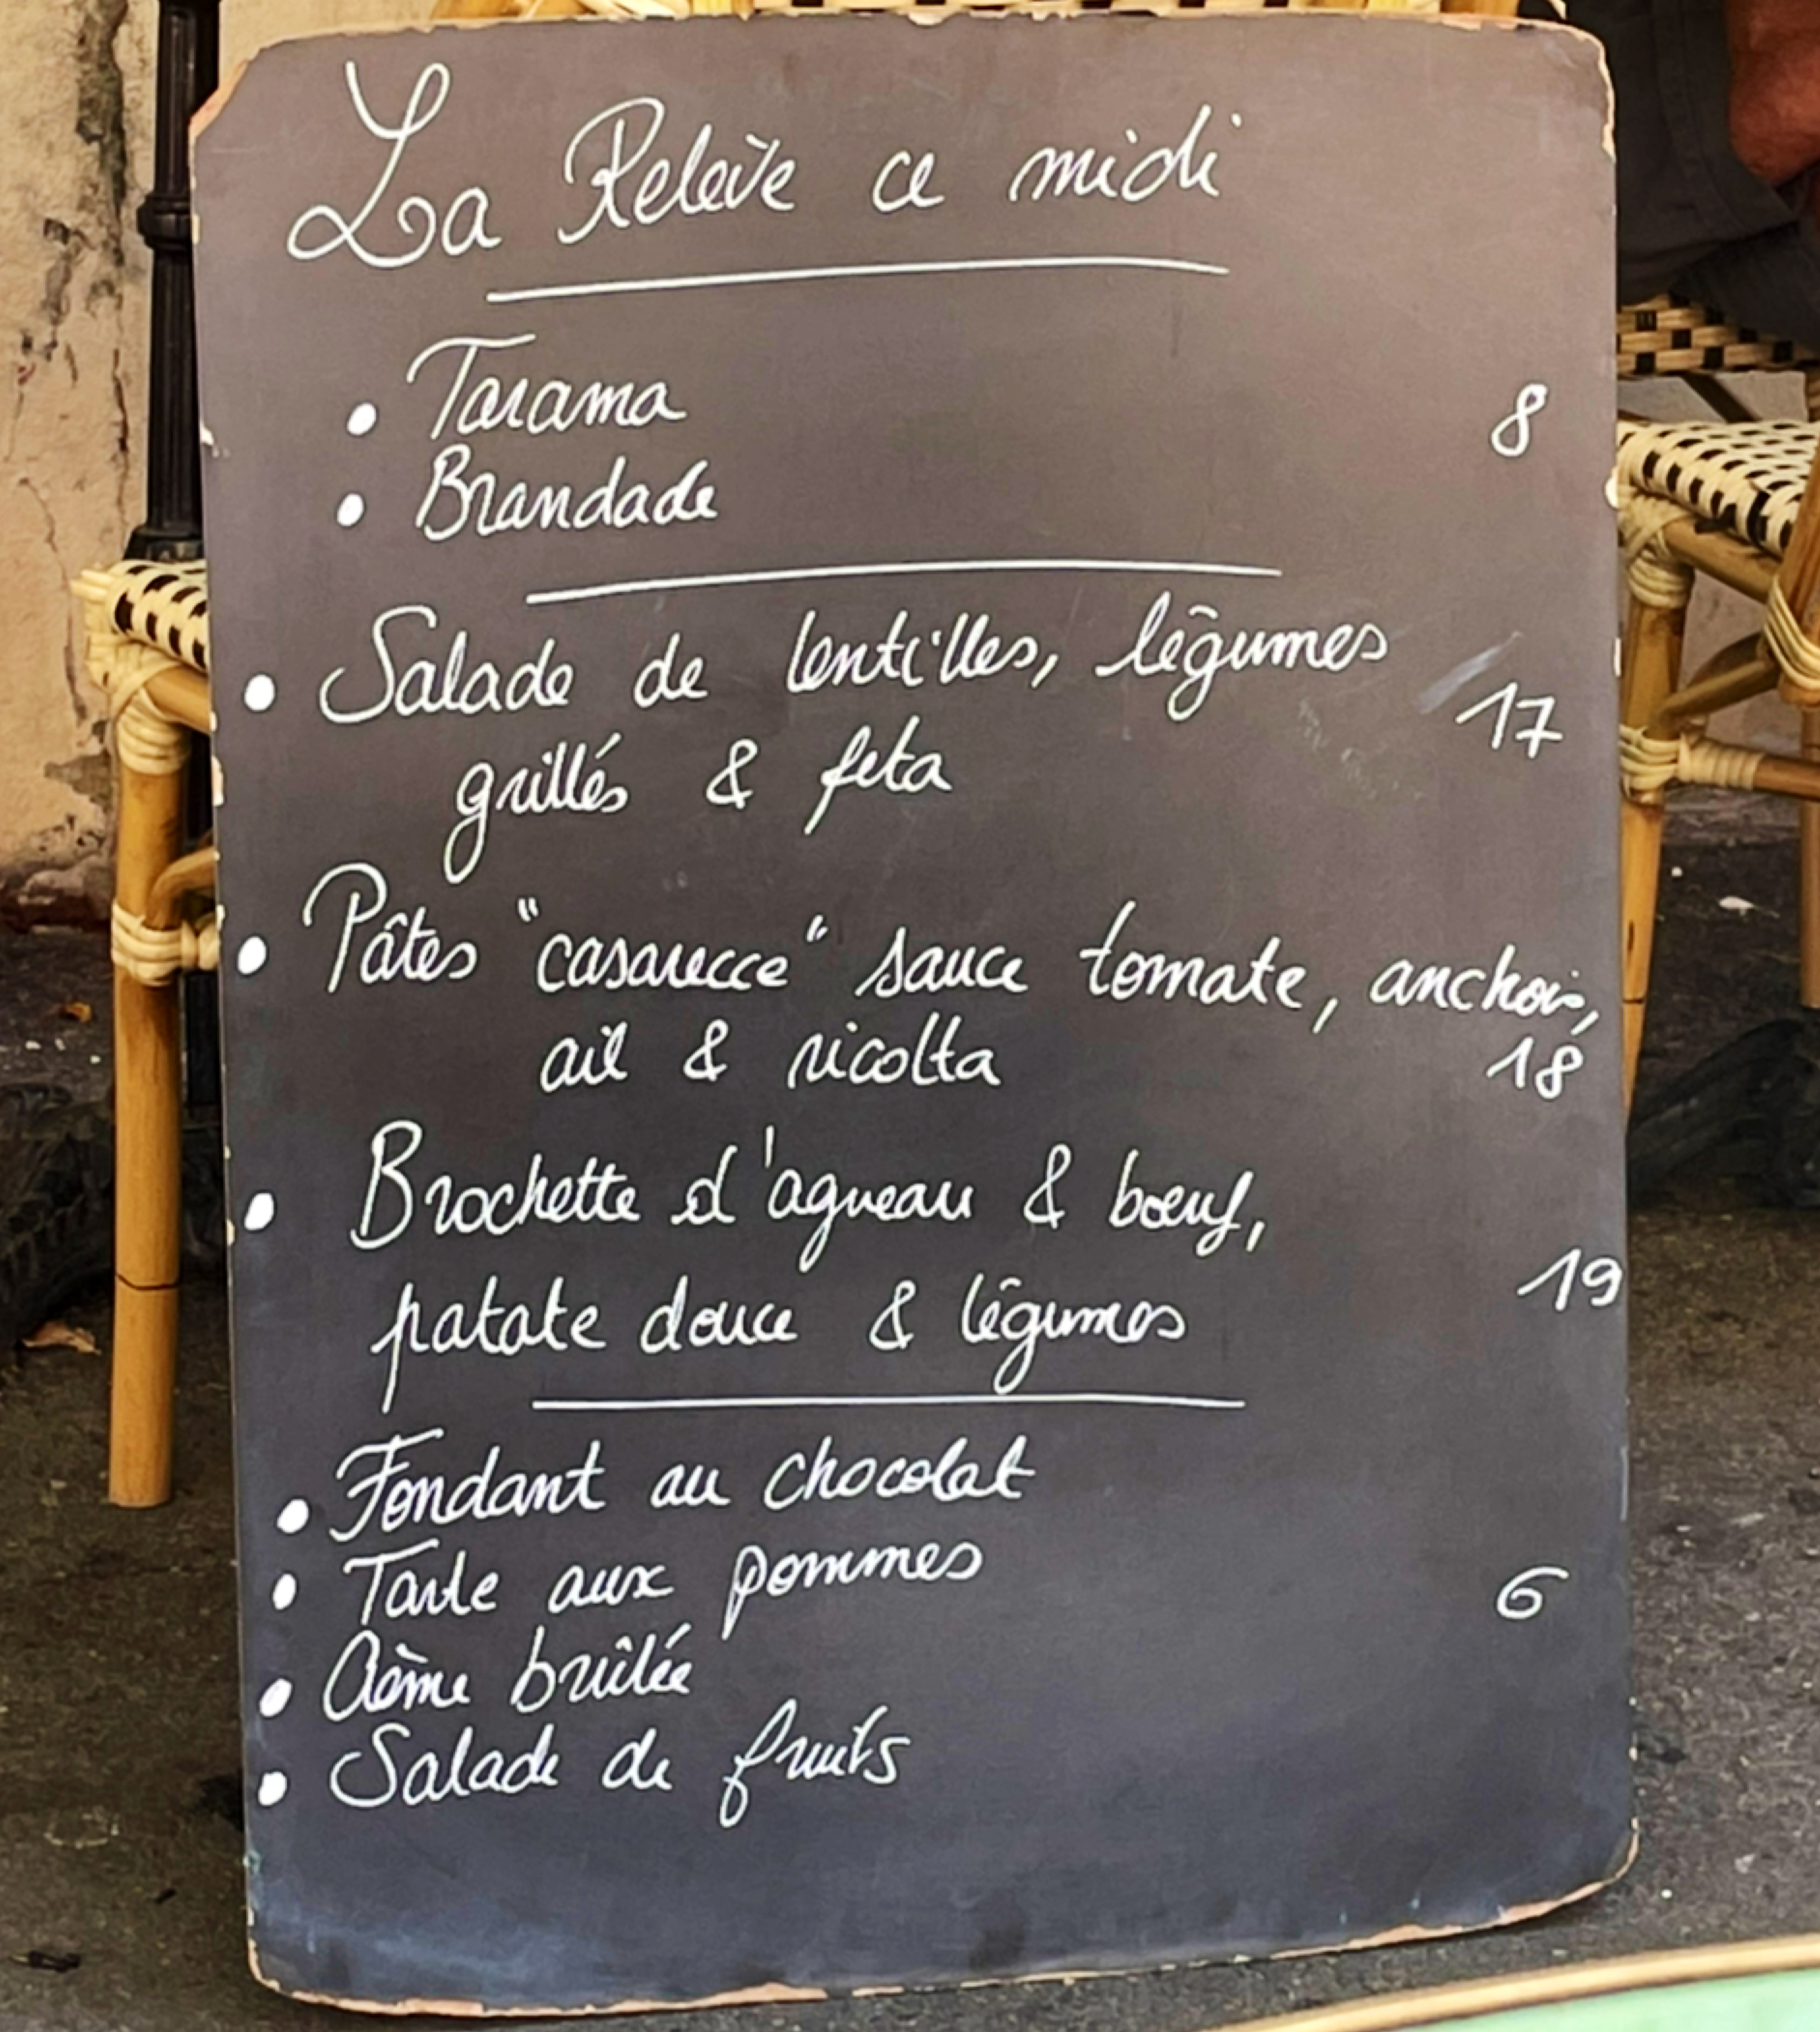 La Relève ce midi
• Tarama 8
• Brandade
• Salade de lentilles, légumes
17
grillés & feta
• Pâtes "casarecce" sauce tomate, anchois,
ail & ricotta 18
• Brochette d'agneau & bœuf,
19
patate douce & légumes
• Fondant au chocolat
• Tarte aux pommes 6
• Crème brûlée
• Salade de fruits